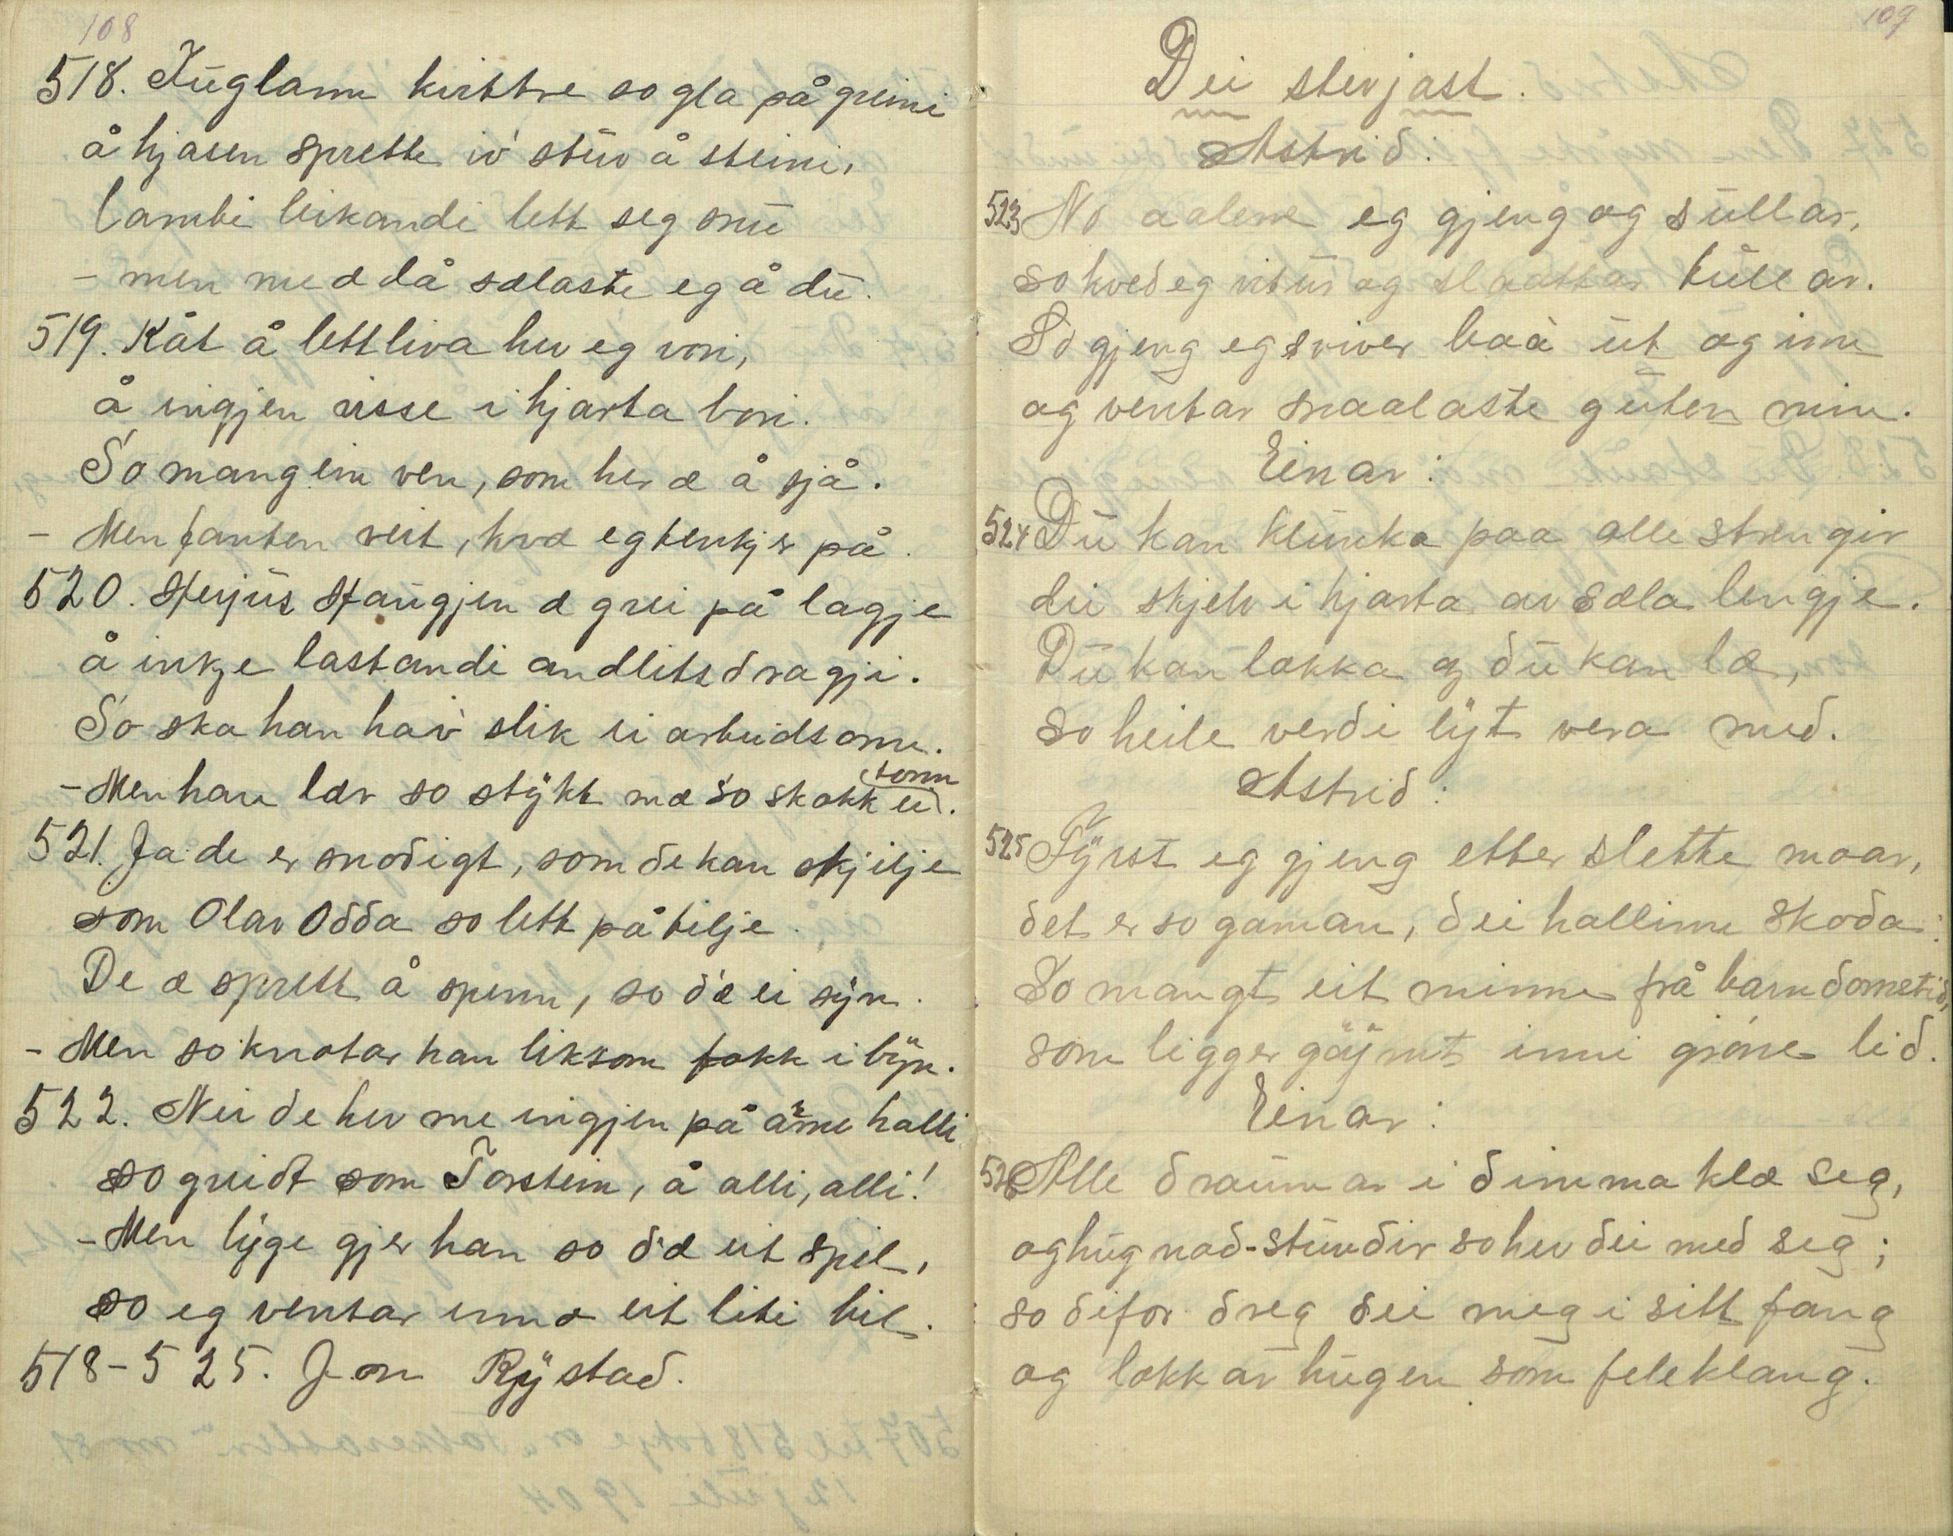 108
518. Fuglann kvittre so gla på greini
å hjasen sprette iv' stuv å steini,
lambi leikandi lett seg snu
– men me æ då sælaste eg å du.
519. Kåt å lettliva hev eg vori,
å ingjen visse i hjarta bori.
So mang ein ven, som her æ å sjå.
– Men fanten veit, hvæ eg tenkjer på.
520. Herjus Haugjen æ grei på lagje
å inkje lastandi andlitsdragji.
So ska han hav' slik ei arbeidsomn.
– Men han lær so stykt mæ so skakk ein tonn.
521. Ja de er snodigt, som de kan skjilje
som Olav Odda so lett på tilje.
De æ sprett å spenn, so d'æ ei syn.
– Men so knotar han liksom fokk i byn.
522. Nei de hev me ingjen på årne halli
so greidt som Torstein, å alli, alli!
– Men lyge gjer han so d'æ eit spel,
so eg ventar innæ eit liti bil.
518–525. Jon Rystad.
109
Dei stevjast.
Astrid:
523 No aaleine eg gjeng og sullar,
so kved eg vitur og slaattar tullar.
So gjeng eg sviver baa' ut og inn
og ventar snaalaste guten min.
Einar:
524 Du kan klunka paa alle strengir
dei skjelv i hjarta av sæla lengje.
Du kan lokka og du kan læ,
so heile verdi lyt vera med.
Astrid:
525 Fyrst eg gjeng etter slette moar,
det er so gaman, dei hallinne skoda:
So mangt eit minne frå barndometid,
som ligger gøymt inni grøne lid.
Einar:
526 Alle draumar i dimma klæ seg,
og hugnad-stundir so hev dei med seg;
so difor dreg dei meg i sitt fang
og lokkar hugen som feleklang.